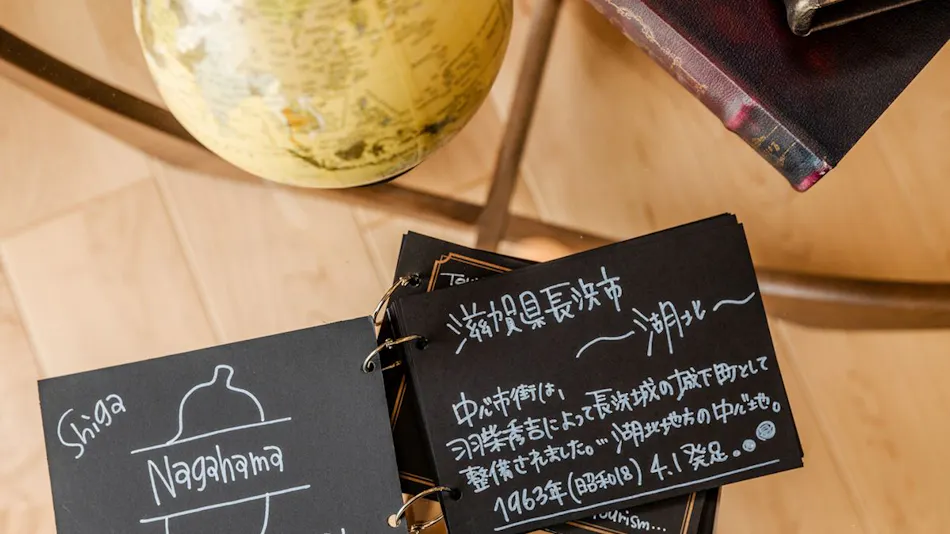 Shiga
Nagahama
滋賀県長浜市
～湖北～
中心市街は、
羽柴秀吉によって長浜城の城下町として
整備されました。… 湖北地方の中心地。
1963年(昭和18) 4.1 発足.
ourism...